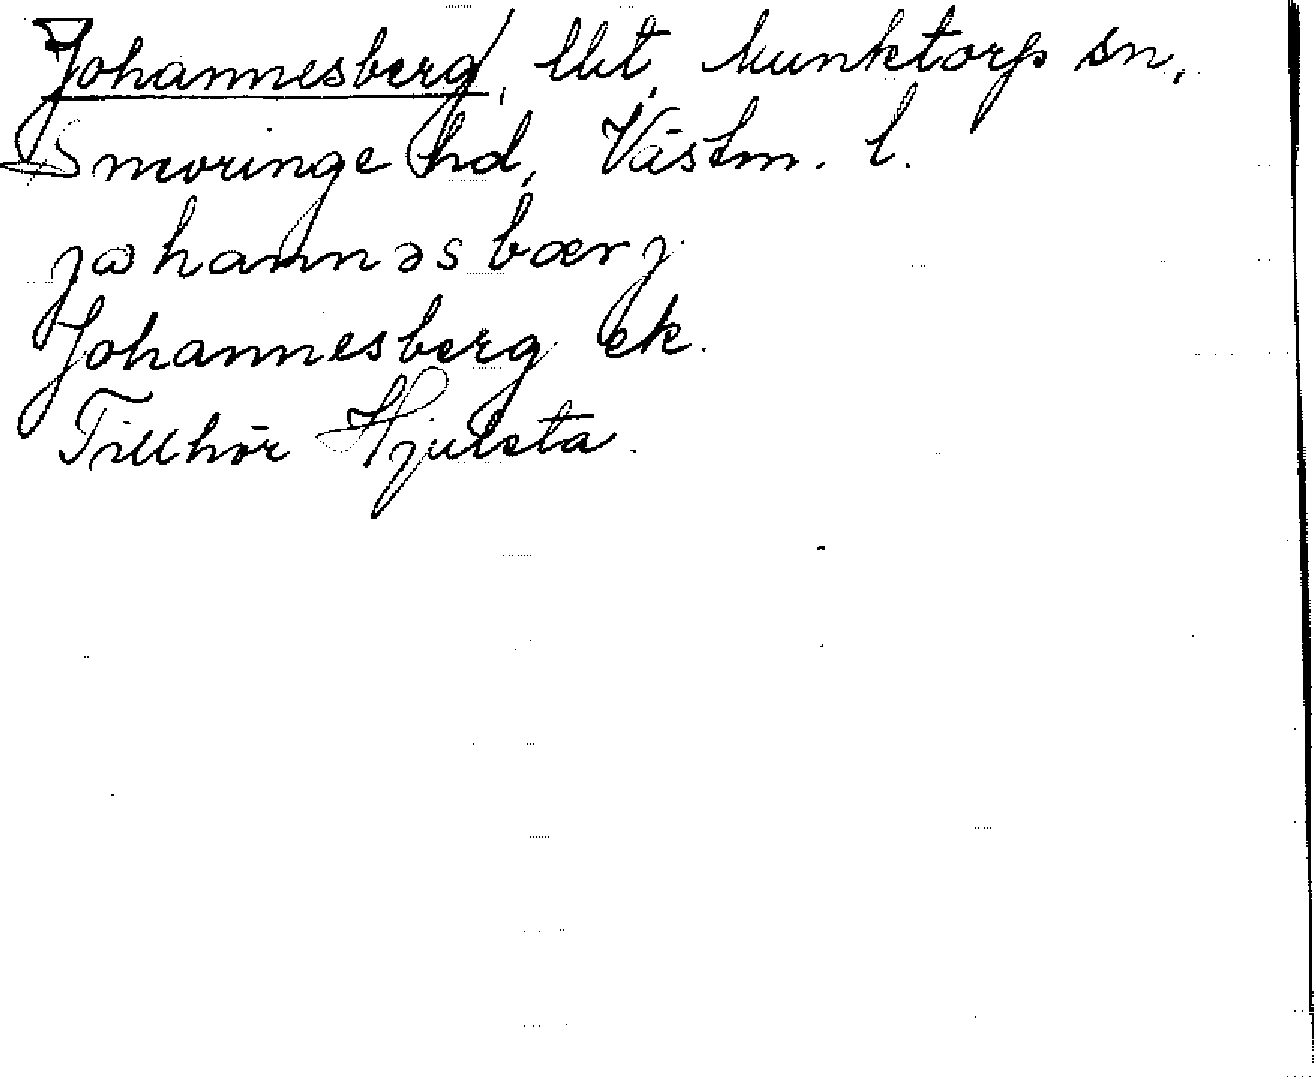 Johannesberg, lht, Munktorp sn,
Snevringe hd, Västm. l.
johannəsbærj.
Johannesberg ek.
Tillhör Hjulsta.